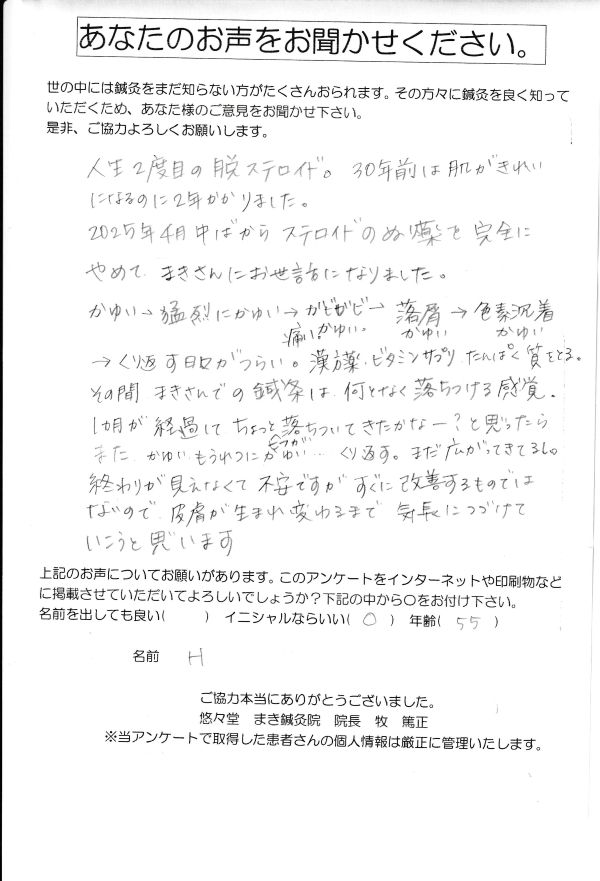 あなたのお声をお聞かせください。
世の中には鍼灸をまだ知らない方がたくさんおられます。その方々に鍼灸を良く知って
いただくため、あなた様のご意見をお聞かせ下さい。
是非、ご協力よろしくお願いします。
人生2度目の脱ステロイド。30年前は肌がきれい
になるのに2年かかりました。
2025年4月中ばから ステロイドのぬり薬を完全に
やめて まきさんにお世話になりました。
かゆい→猛烈にかゆい→ガビガビ→落屑→色素沈着
痛いかゆい。 かゆい かゆい
→くり返す日々がつらい。漢方薬、ビタミンサプリ、たんぱく質をとる。
その間 まきさんでの鍼灸は 何となく落ちつける感覚。
1カ月が経過して ちょっと落ちついてきたかなー?と思ったら
また かゆい もうれつにかゆい… くり返す。まだ広がってきてるし。
終わりが見えなくて 不安ですが すぐに改善するものでは
ないので、皮膚が生まれ変わるまで 気長につづけて
いこうと思います
上記のお声についてお願いがあります。このアンケートをインターネットや印刷物など
に掲載させていただいてよろしいでしょうか?下記の中から○をお付け下さい。
名前を出しても良い( ) イニシャルならいい( ○ ) 年齢( 55 )
名前 H
ご協力本当にありがとうございました。
悠々堂 まき鍼灸院 院長 牧 篤正
※当アンケートで取得した患者さんの個人情報は厳正に管理いたします。